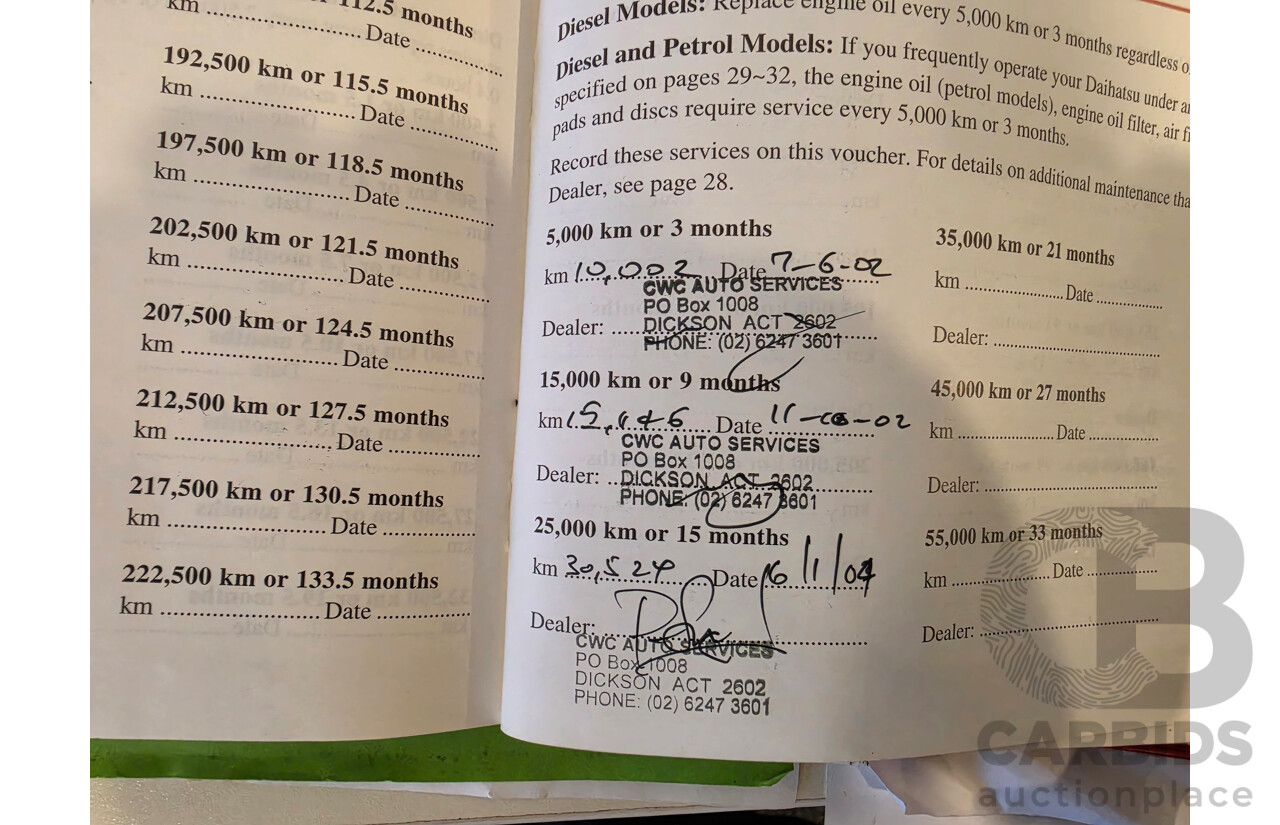 112.5 months
km .................... Date ..............
192,500 km or 115.5 months
km .................... Date ..............
197,500 km or 118.5 months
km .................... Date ..............
202,500 km or 121.5 months
km .................... Date ..............
207,500 km or 124.5 months
km .................... Date ..............
212,500 km or 127.5 months
km .................... Date ..............
217,500 km or 130.5 months
km .................... Date ..............
222,500 km or 133.5 months
km .................... Date ..............
Diesel Models: Replace engine oil every 5,000 km or 3 months regardless
Diesel and Petrol Models: If you frequently operate your Daihatsu under
specified on pages 29~32, the engine oil (petrol models), engine oil filter, air
pads and discs require service every 5,000 km or 3 months.
Record these services on this voucher. For details on additional maintenance
Dealer, see page 28.
5,000 km or 3 months
km 10,002 Date 7-6-02
CWC AUTO SERVICES
PO Box 1008
Dealer: DICKSON ACT 2602
PHONE: (02) 6247 3601
15,000 km or 9 months
km Date
CWC AUTO SERVICES
PO Box 1008
Dealer: DICKSON ACT 2602
PHONE: (02) 6247 3601
25,000 km or 15 months
km 30,524 Date 16/1/04
Dealer:
CWC AUTO SERVICES
PO Box 1008
DICKSON ACT 2602
PHONE: (02) 6247 3601
35,000 km or 21 months
km .................... Date ..............
Dealer: ..............................
45,000 km or 27 months
km .................... Date ..............
Dealer: ..............................
55,000 km or 33 months
km .................... Date ..............
Dealer: ..............................
CB
CARBIDS
auctionplace